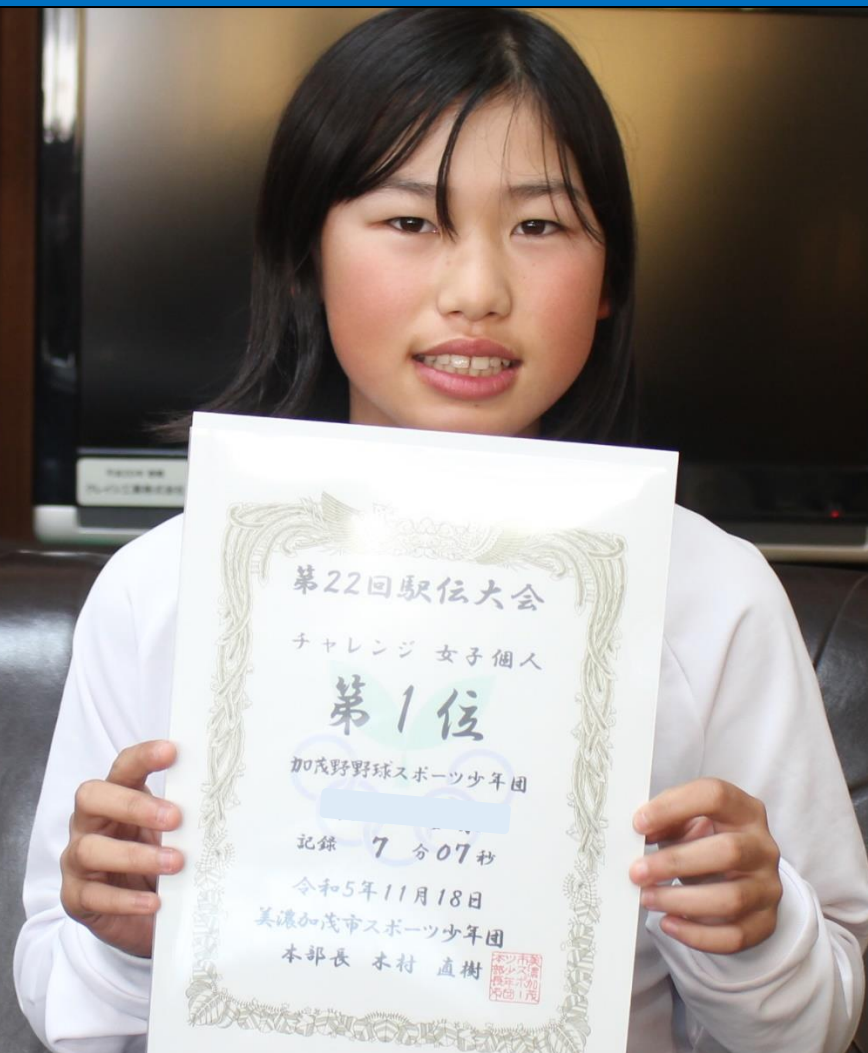 第22回駅伝大会
チャレンジ 女子個人
第1位
加茂野野球スポーツ少年団
記録 7分07秒
令和5年11月18日
美濃加茂市スポーツ少年団
本部長 木村 直樹